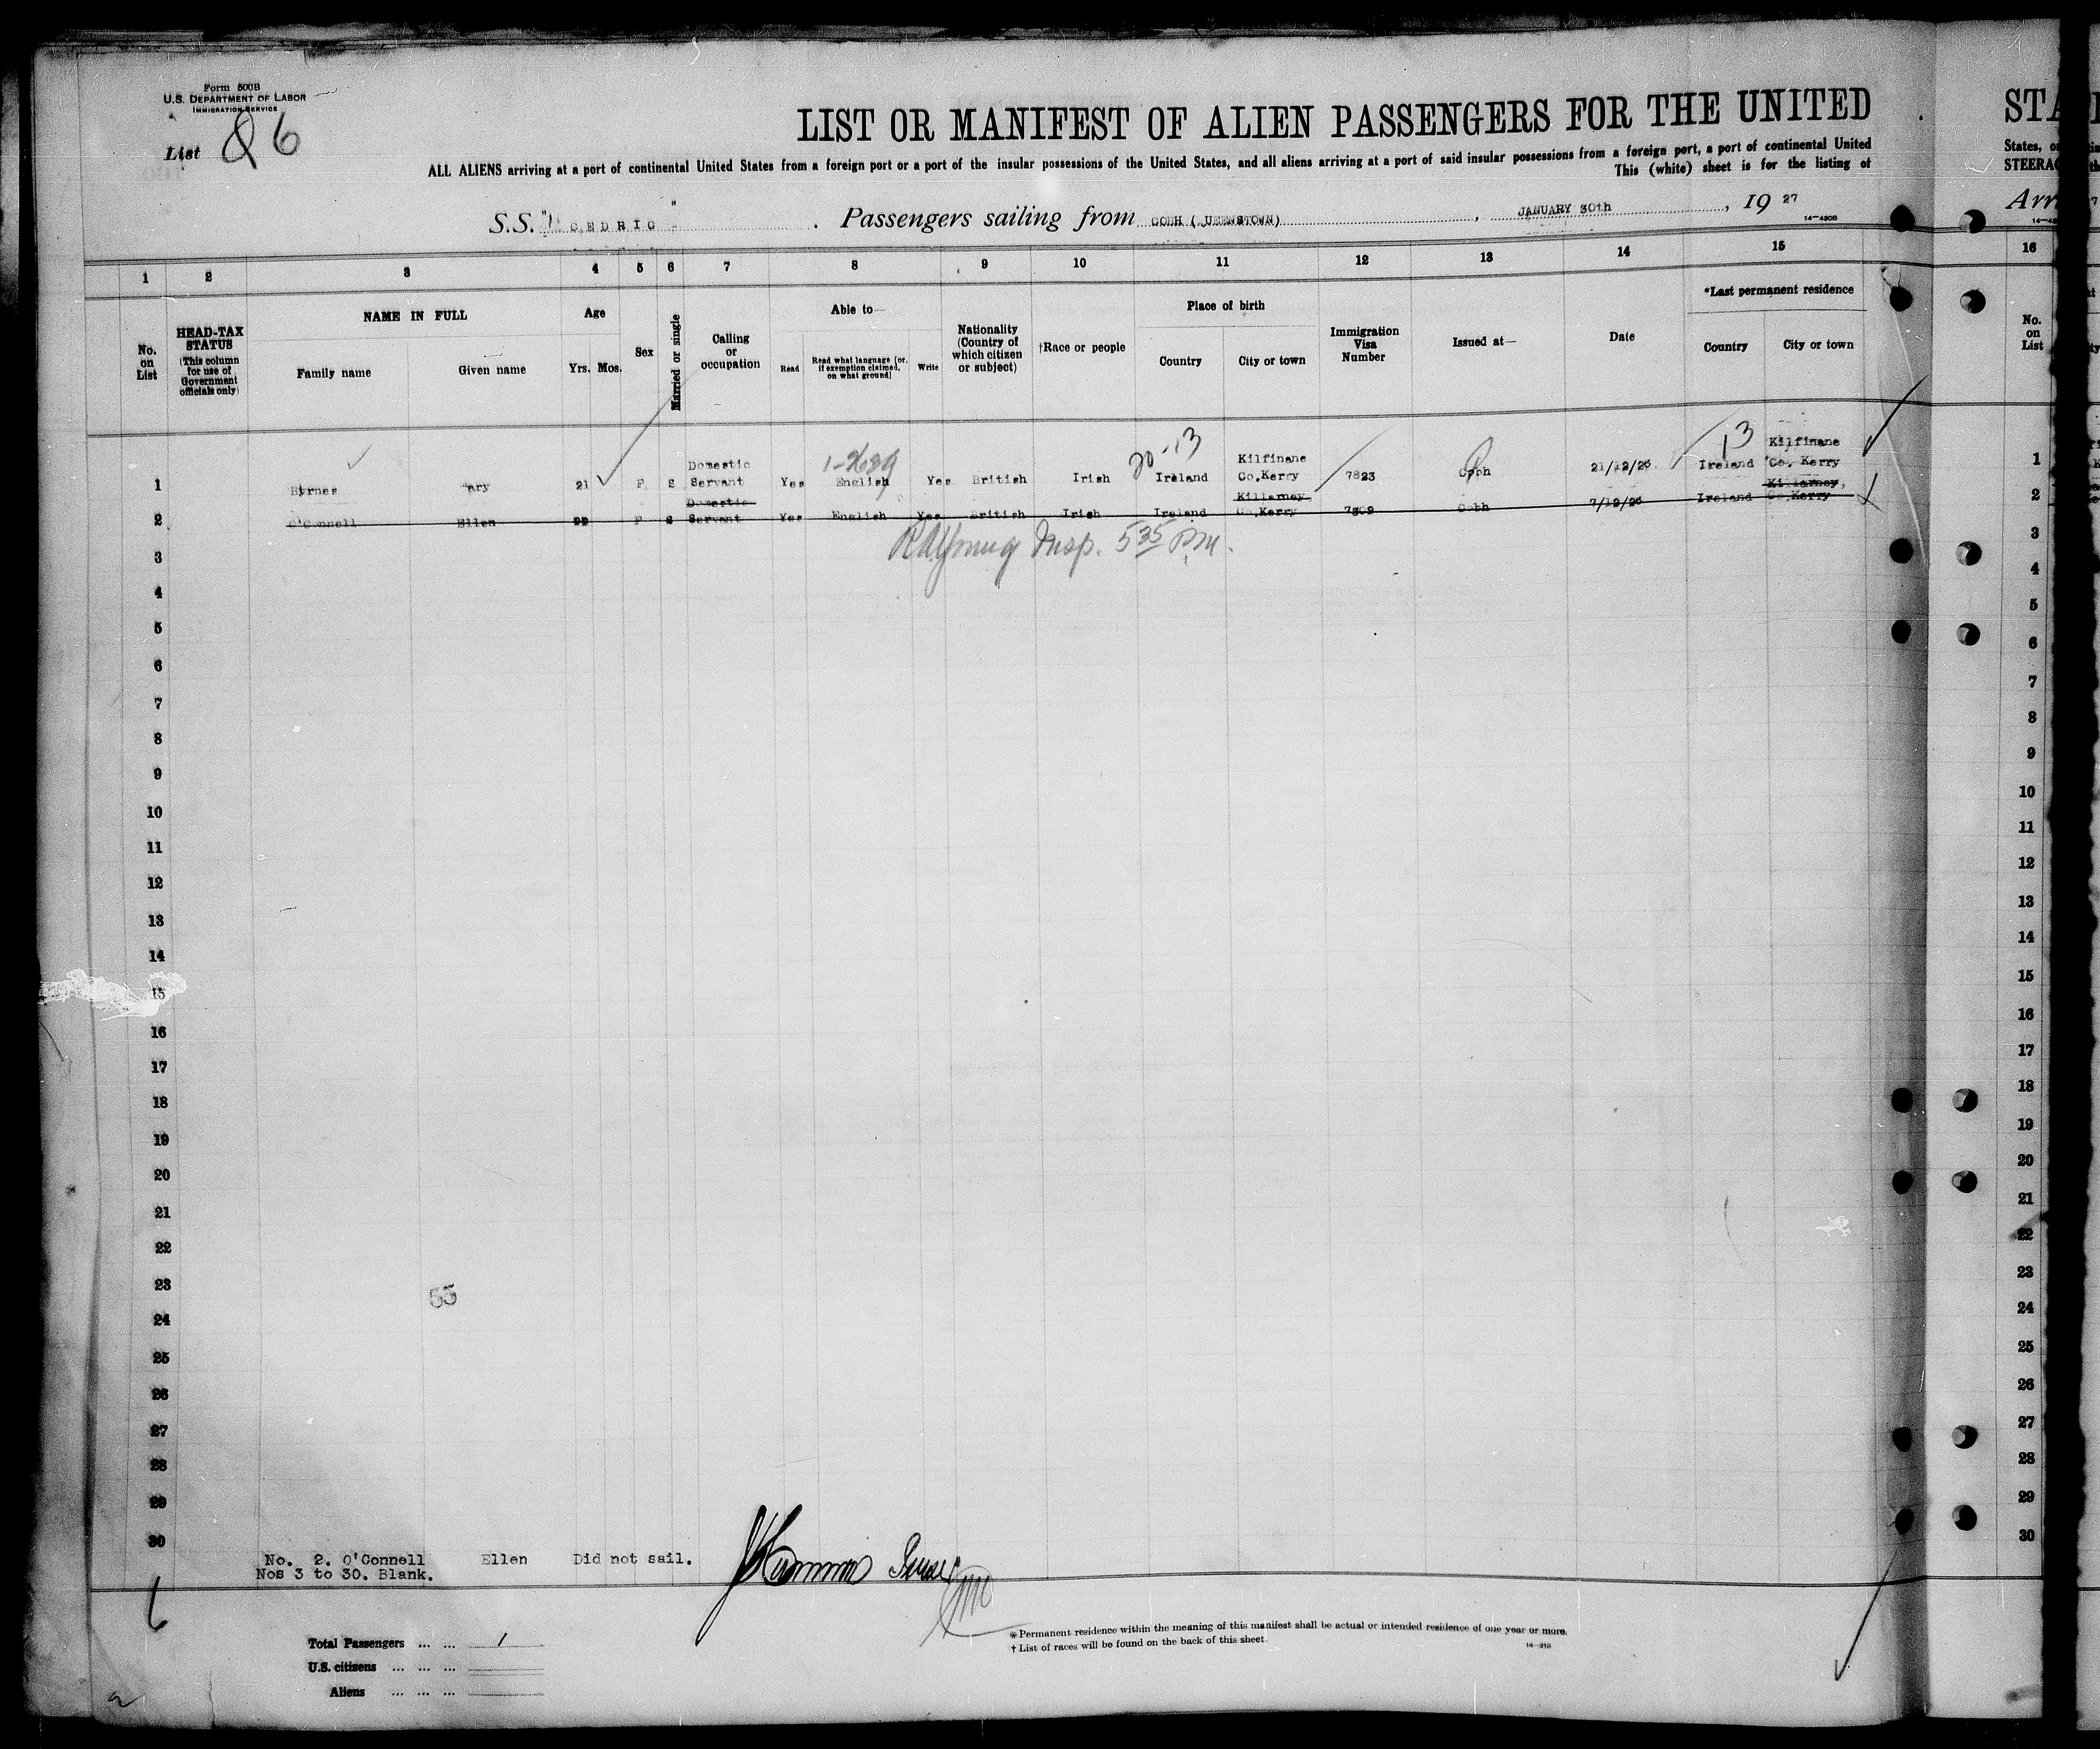 Form 500B
U.S. DEPARTMENT OF LABOR
IMMIGRATION SERVICE
List 86
LIST OR MANIFEST OF ALIEN PASSENGERS FOR THE UNITED
ALL ALIENS arriving at a port of continental United States from a foreign port or a port of the insular possessions of the United States, and all aliens arriving at a port of said insular possessions from a foreign port, a port of continental United
This (white) sheet is for the listing of
S.S. "CEDRIC". Passengers sailing from COBH (UEENSTOWN), JANUARY 30th, 19 27
14-430B
1 2 3 4 5 6 7 8 9 10 11 12 13 14 15
No. on List
HEAD-TAX STATUS
(This column for use of Government officials only)
NAME IN FULL
Family name Given name
Age
Yrs. Mos.
Sex
Married or single
Calling or occupation
Able to—
Read Read what language (or, if exemption claimed, on what ground) Write
Nationality (Country of which citizen or subject)
†Race or people
Place of birth
Country City or town
Immigration Visa Number
Issued at—
Date
*Last permanent residence
Country City or town
20-13 13
1 Byrnes ary 21 F S Domestic Servant Yes English Yes British Irish Ireland Kilfinane Co.Kerry 7823 Cobh 21/12/26 Ireland Kilfinane Co. Kerry
2 O'Connell Ellen 22 F S Domestic Servant Yes English Yes British Irish Ireland Killarney Co.Kerry Cobh 7/12/26 Ireland Killarney, Co.Kerry
3
Insp. 5 35 P.M.
4
5
6
7
8
9
10
11
12
13
14
15
16
17
18
19
20
21
22
23
55
24
25
26
27
28
29
30
No. 2. O'Connell Ellen Did not sail.
Nos 3 to 30. Blank.
Total Passengers ... ... 1
U.S. citizens ... ... ...
Aliens ... ... ...
*Permanent residence within the meaning of this manifest shall be actual or intended residence of one year or more.
†List of races will be found on the back of this sheet.
STA
States, o
STEERAG
Arr
16
No. on List
1
2
3
4
5
6
7
8
9
10
11
12
13
14
15
16
17
18
19
20
21
22
23
24
25
26
27
28
29
30